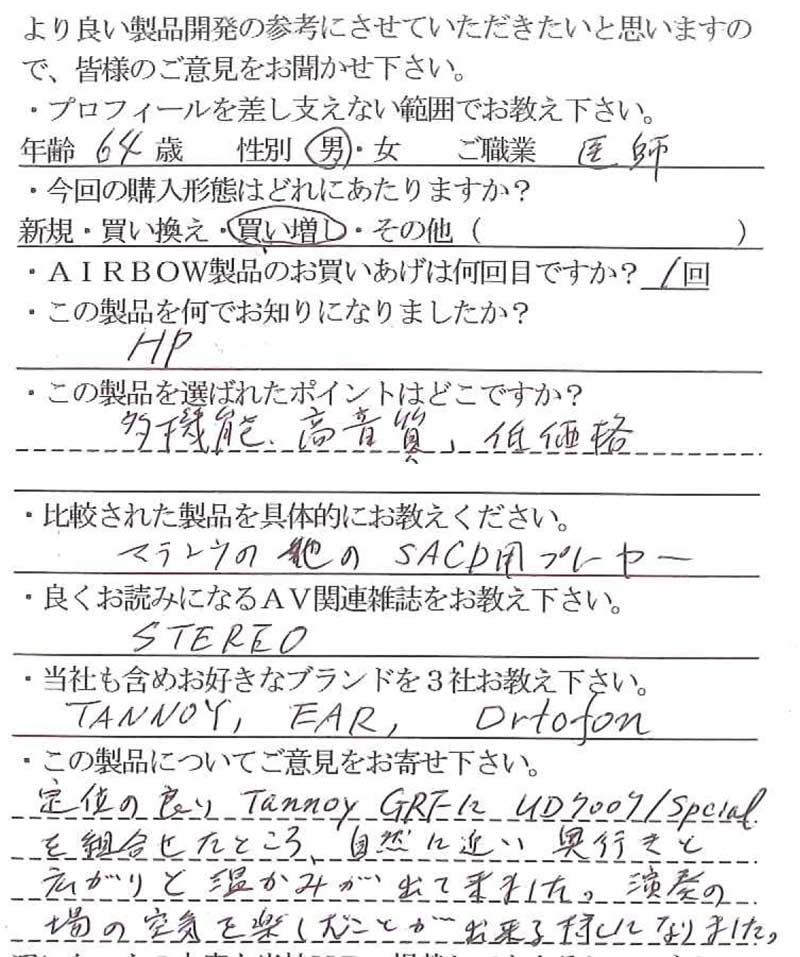 より良い製品開発の参考にさせていただきたいと思いますの
で、皆様のご意見をお聞かせ下さい。
・プロフィールを差し支えない範囲でお教え下さい。
年齢 64 歳 性別 男・女 ご職業 医師
・今回の購入形態はどれにあたりますか？
新規・買い換え・買い増し・その他（ ）
・ＡＩＲＢＯＷ製品のお買いあげは何回目ですか？ 1回
・この製品を何でお知りになりましたか？
HP
・この製品を選ばれたポイントはどこですか？
多機能、高音質、低価格
・比較された製品を具体的にお教えください。
マランツの他のSACD用プレーヤー
・良くお読みになるＡＶ関連雑誌をお教え下さい。
STEREO
・当社も含めお好きなブランドを３社お教え下さい。
TANNOY, EAR, Ortofon
・この製品についてご意見をお寄せ下さい。
定位の良い Tannoy GRFに UD7007/Spcial
を組合せたところ、自然に近い 奥行きと
広がりと温かみが出て来ました。演奏の
場の空気を楽しむことが出来る様になりました。